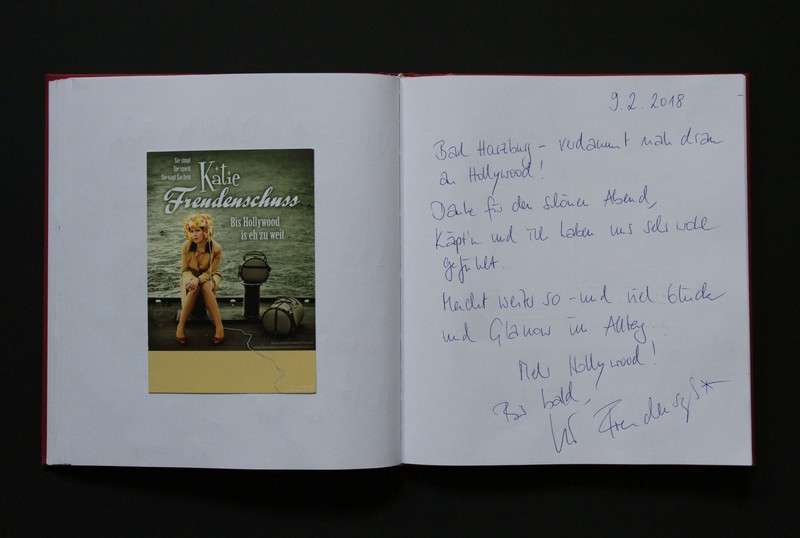 Sie singt
Sie spielt
Sie sagt Sachen
Katie
Freudenschuss
Bis Hollywood
is eh zu weit
9.2.2018
Bad Harzburg – verdammt nah dran
an Hollywood!
Danke für den schönen Abend,
Käpt'n und ich haben uns sehr wohl
gefühlt.
Macht weiter so – und viel Glück
und Glamour im Alltag.
Mehr Hollywood!
Bis bald,
Freudenschuss*